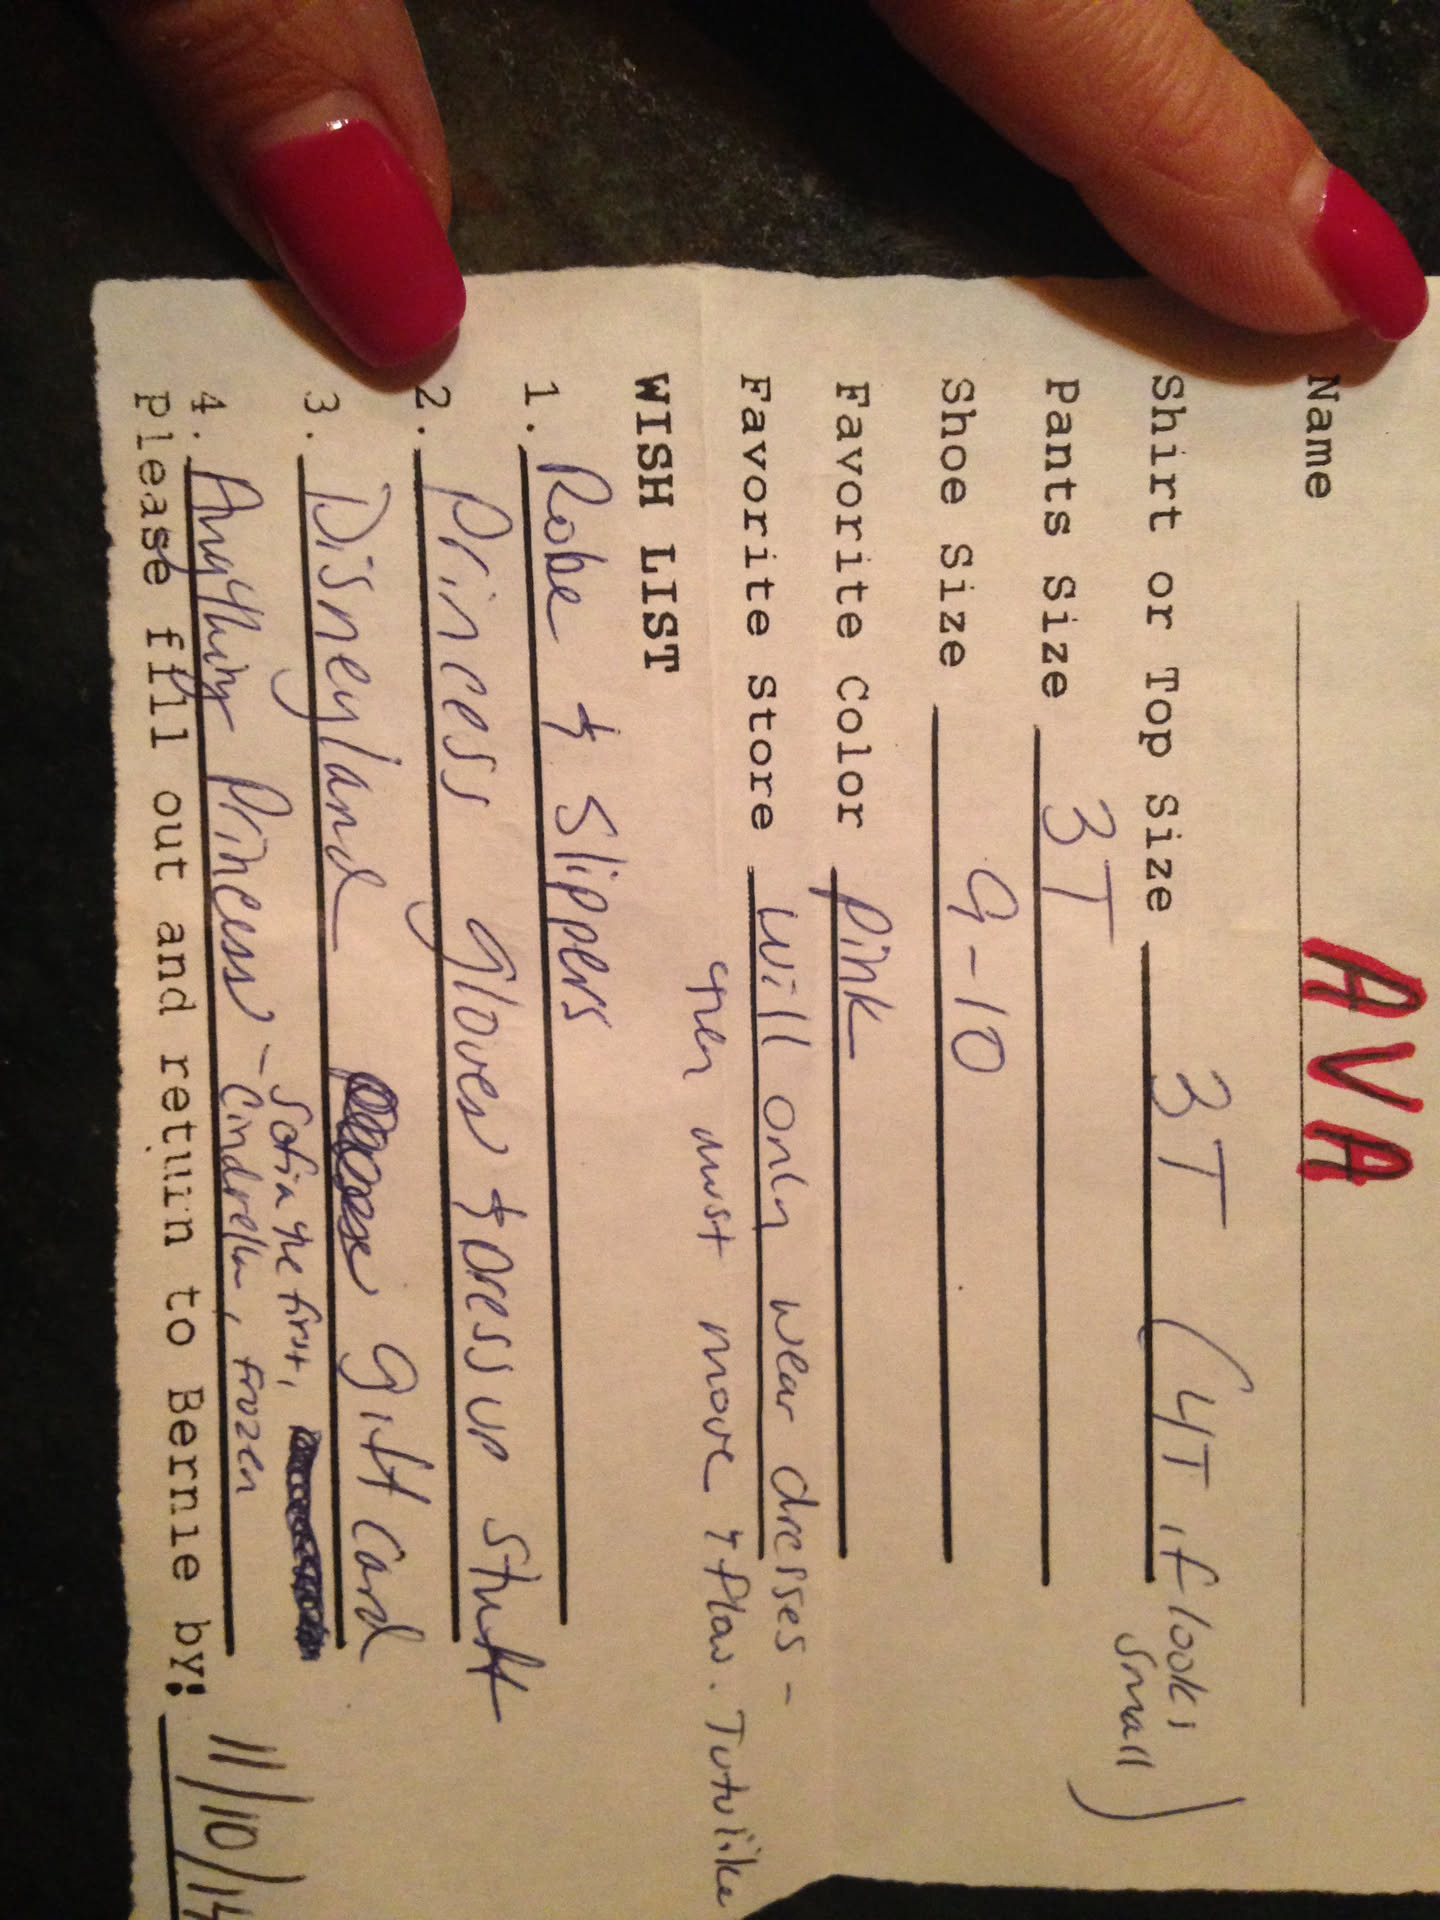 Name AVA
Shirt or Top Size 3T (4T if looks
small)
Pants Size 3T
Shoe Size 9-10
Favorite Color Pink
Favorite Store Will only wear dresses -
they must move & flow. Tutu like
WISH LIST
1. Robe & Slippers
2. Princess gloves & Dress up Stuff
3. Disneyland gift card
Sofia the first,
4. Anything Princess - Cindrella, Frozen
Please fill out and return to Bernie by: 11/10/14